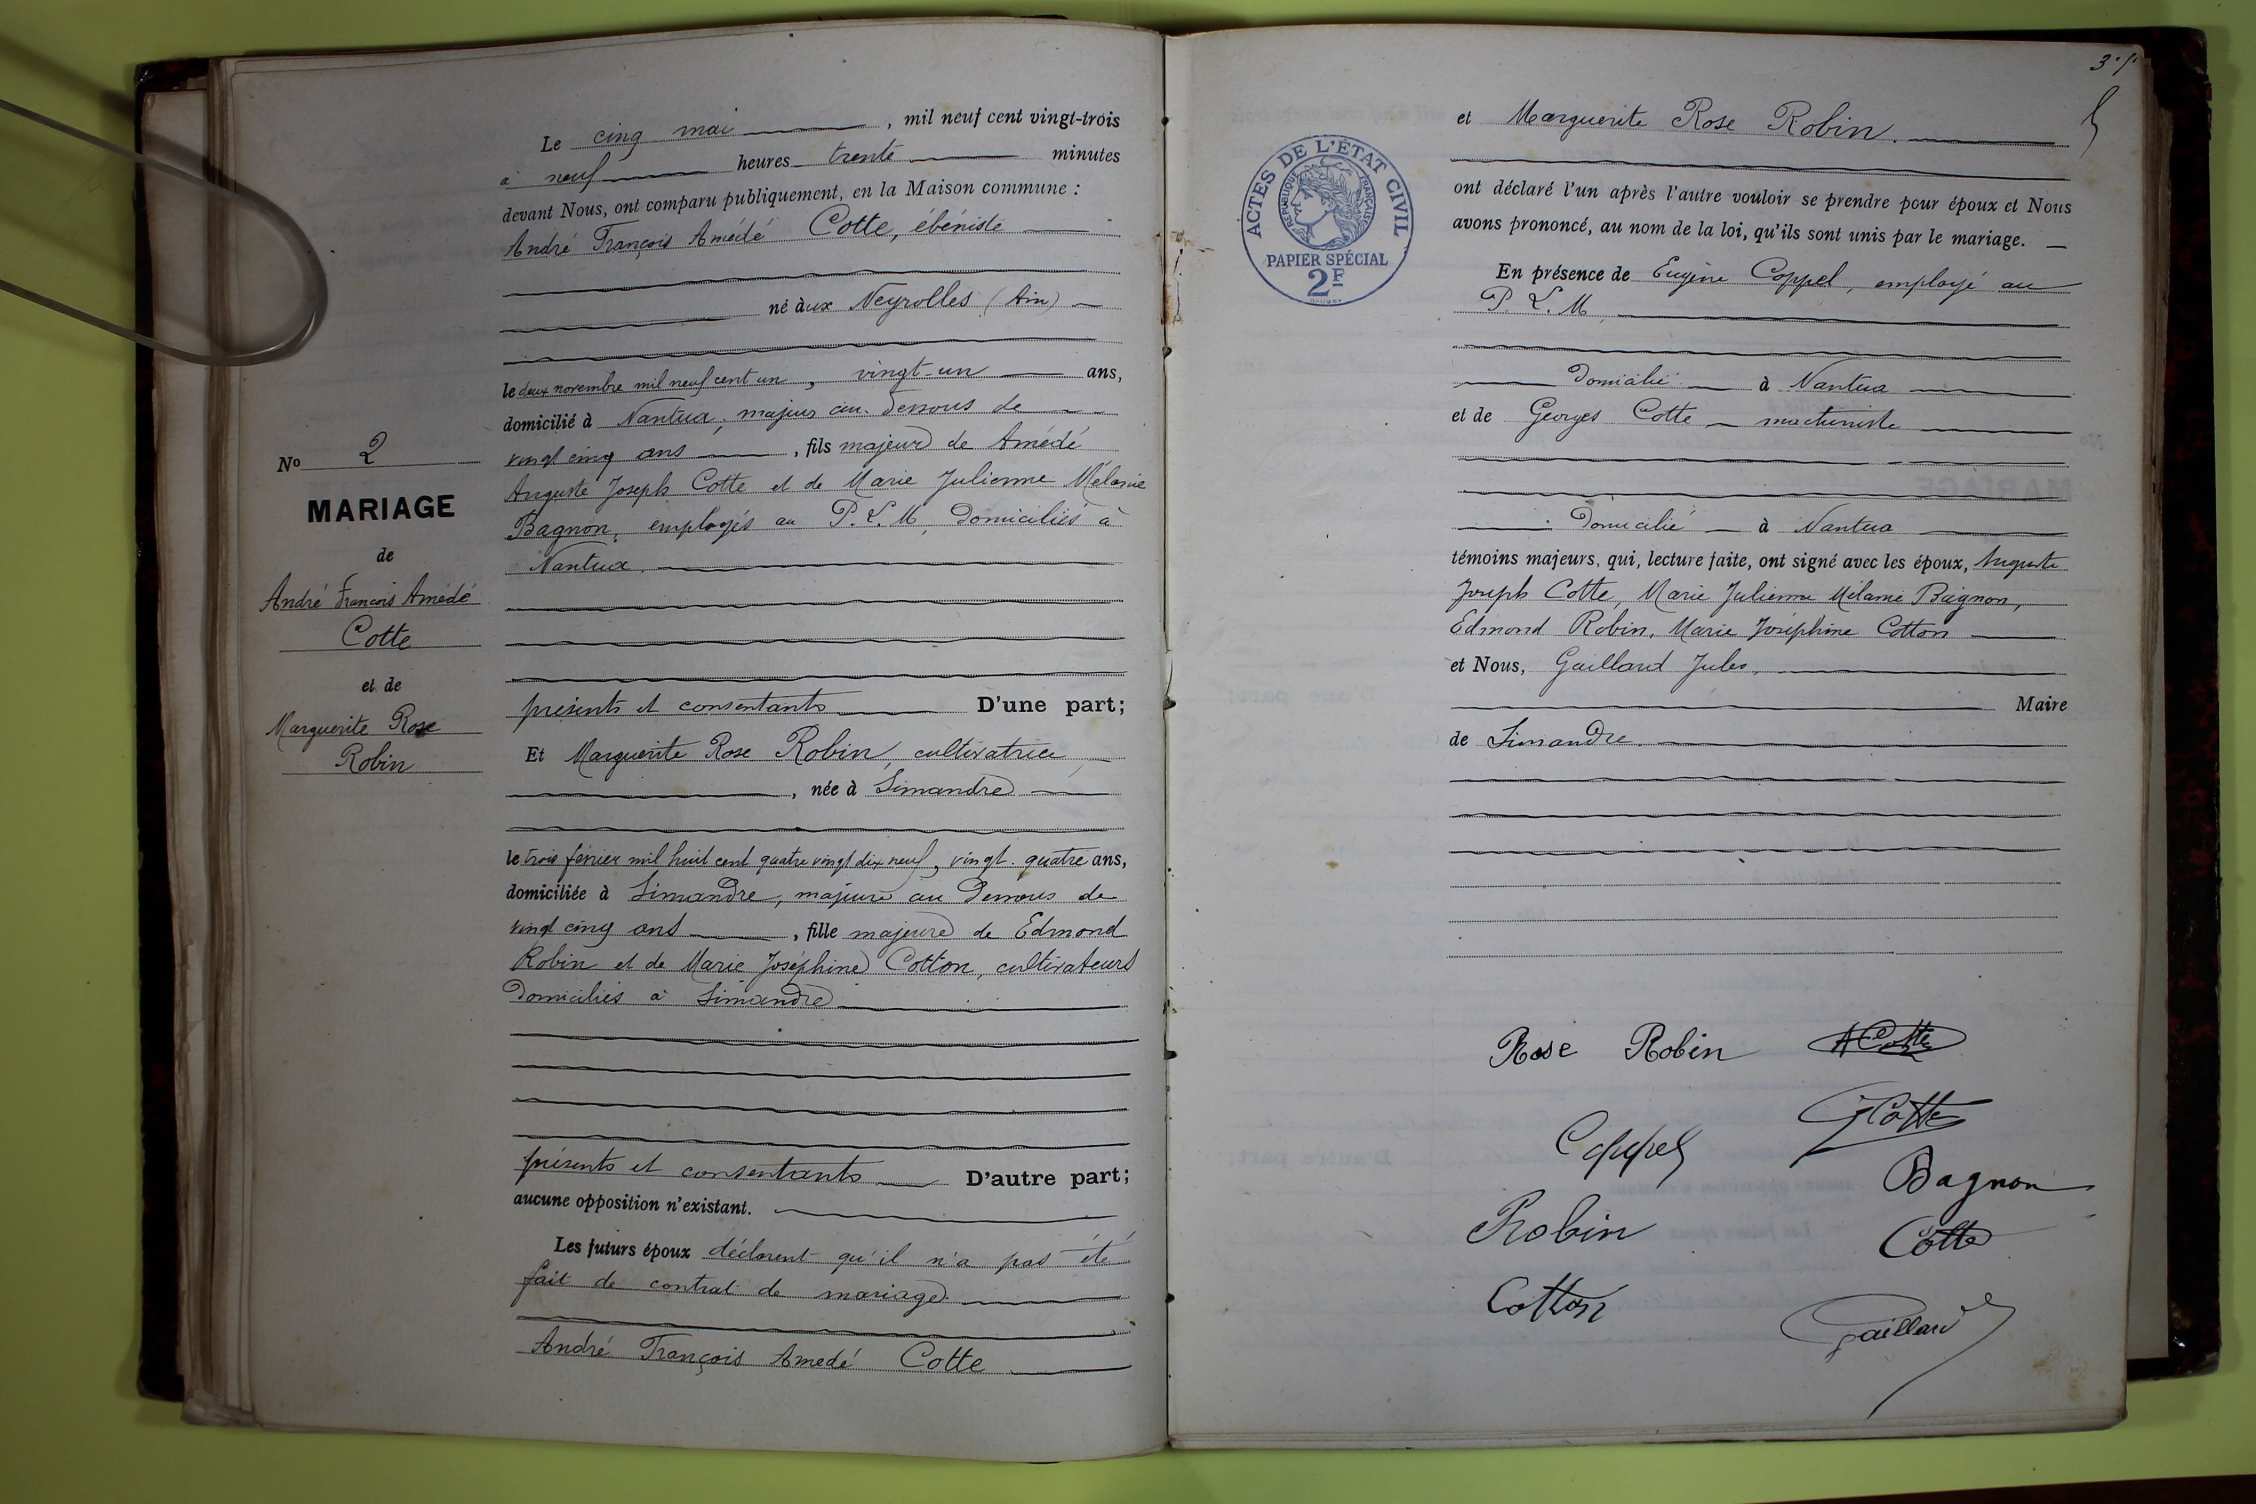 Le cinq mai, mil neuf cent vingt-trois
à neuf heures trente minutes
devant Nous, ont comparu publiquement, en la Maison commune :
André François Amédé Cotte, ébéniste
né aux Neyrolles (Ain)
le deux novembre mil neuf cent un, vingt-un ans,
domicilié à Nantua, majeur au-dessous de
vingt cinq ans, fils majeur de Amédé
Auguste Joseph Cotte et de Marie Julienne Mélanie
Bagnon, employés au P.L.M, domiciliés à
Nantua.
présents et consentants D'une part;
Et Marguerite Rose Robin, cultivatrice,
née à Simandre
le trois février mil huit cent quatre vingt dix neuf, vingt-quatre ans,
domiciliée à Simandre, majeure au dessous de
vingt cinq ans, fille majeure de Edmond
Robin et de Marie Joséphine Cotton, cultivateurs
domiciliés à Simandre
présents et consentants D'autre part;
aucune opposition n'existant.
Les futurs époux déclarent qu'il n'a pas été
fait de contrat de mariage.
André François Amedé Cotte
No 2
MARIAGE
de
André François Amédé
Cotte
et de
Marguerite Rose
Robin
et Marguerite Rose Robin.
ont déclaré l'un après l'autre vouloir se prendre pour époux et Nous
avons prononcé, au nom de la loi, qu'ils sont unis par le mariage.
En présence de Eugène Coppel, employé au
P.L.M,
domicilié à Nantua
et de Georges Cotte machiniste
domicilié à Nantua
témoins majeurs, qui, lecture faite, ont signé avec les époux, Auguste
Joseph Cotte, Marie Julienne Mélanie Bagnon,
Edmond Robin, Marie Joséphine Cotton
et Nous, Gaillard Jules,
Maire
de Simandre.
ACTES DE L'ÉTAT CIVIL
RÉPUBLIQUE FRANÇAISE
PAPIER SPÉCIAL
2F
Rose Robin A Cotte
G Cotte
Coppel
Bagnon
Robin
Cotte
Cotton
Gaillard